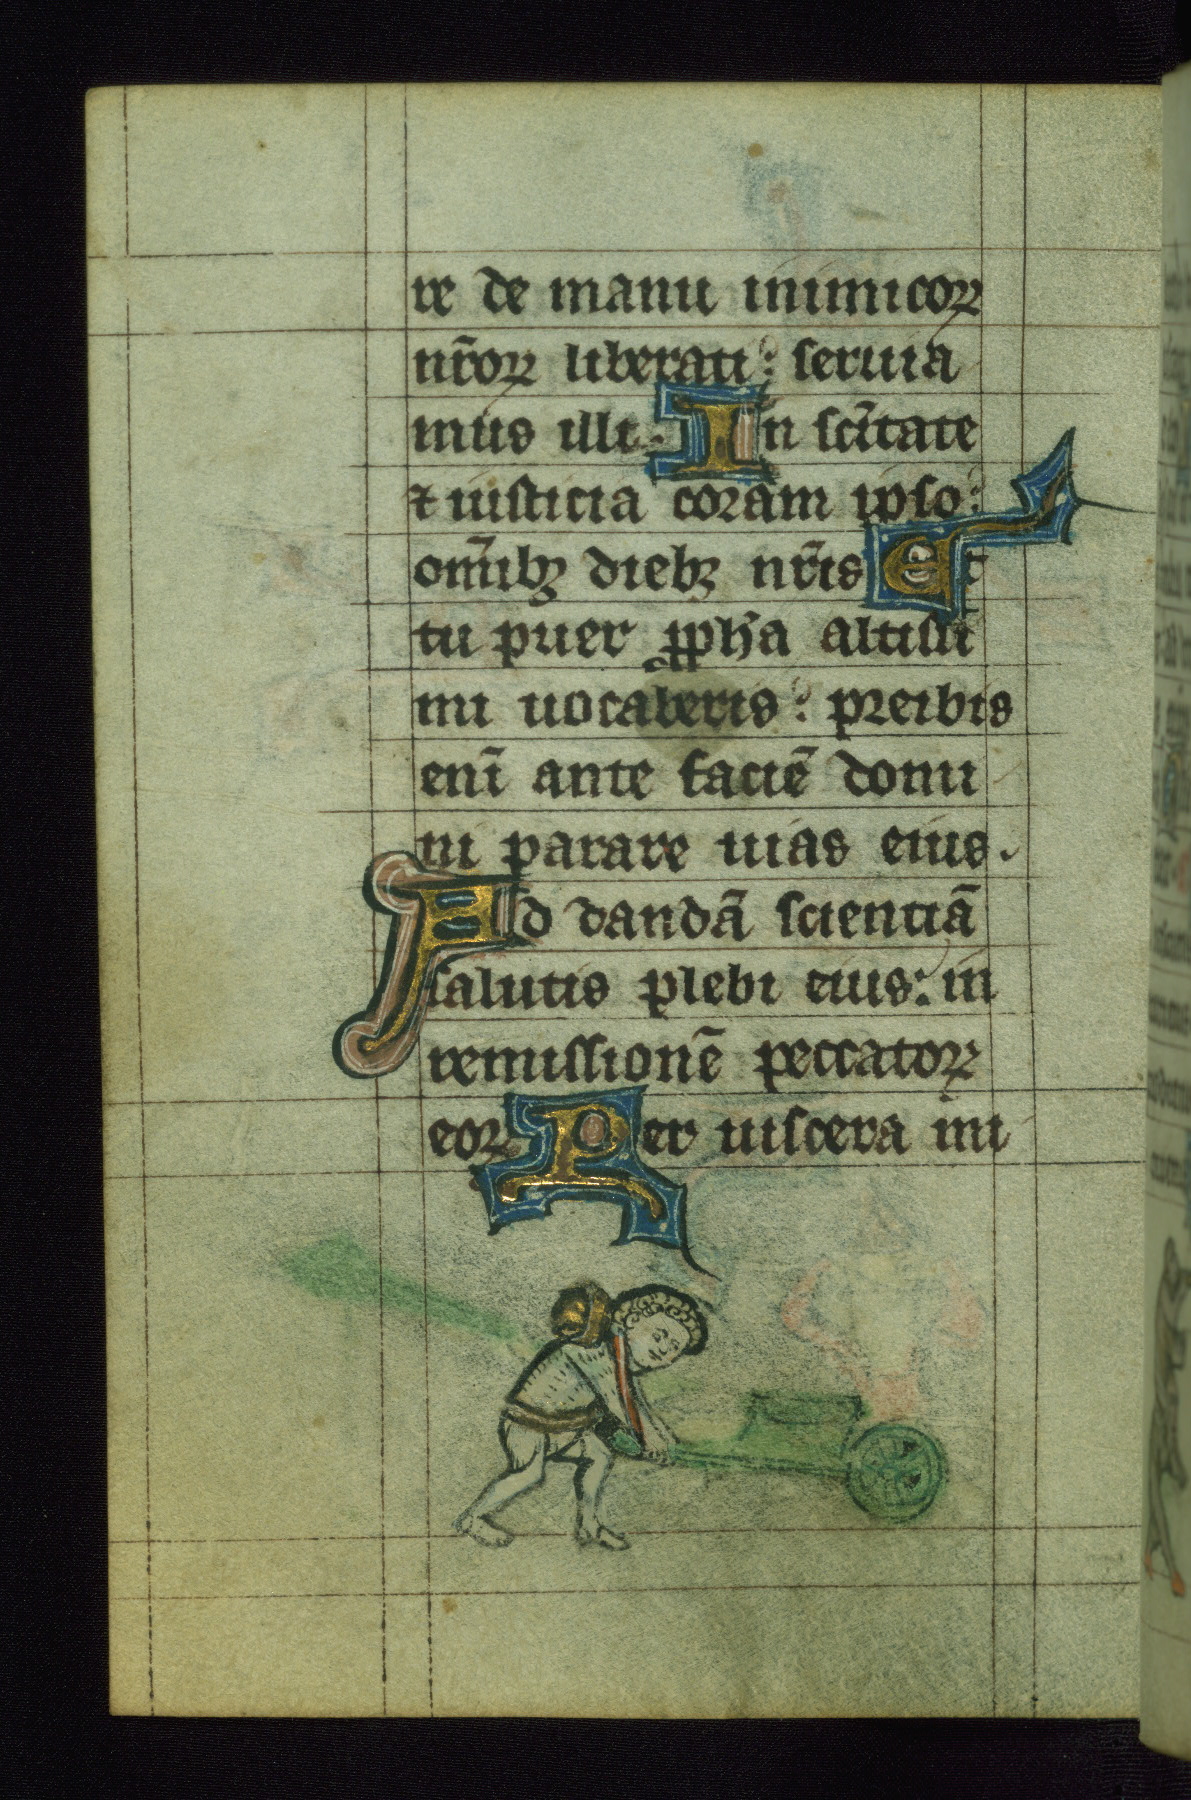 re de manu inimicoꝝ
nr̄oꝝ liberati: seruia
mus illi. In sc̄itate
⁊ iusticia coram ipso:
om̄ibꝫ diebꝫ nr̄is Et
tu puer ꝓph̄a altissi
mi uocaberis: preibis
enī ante faciē domi
ni parare uias eius.
Ad dandā scientiā
salutis plebi eius: in
remissionē peccatoꝝ
eoꝝ Per uiscera mi